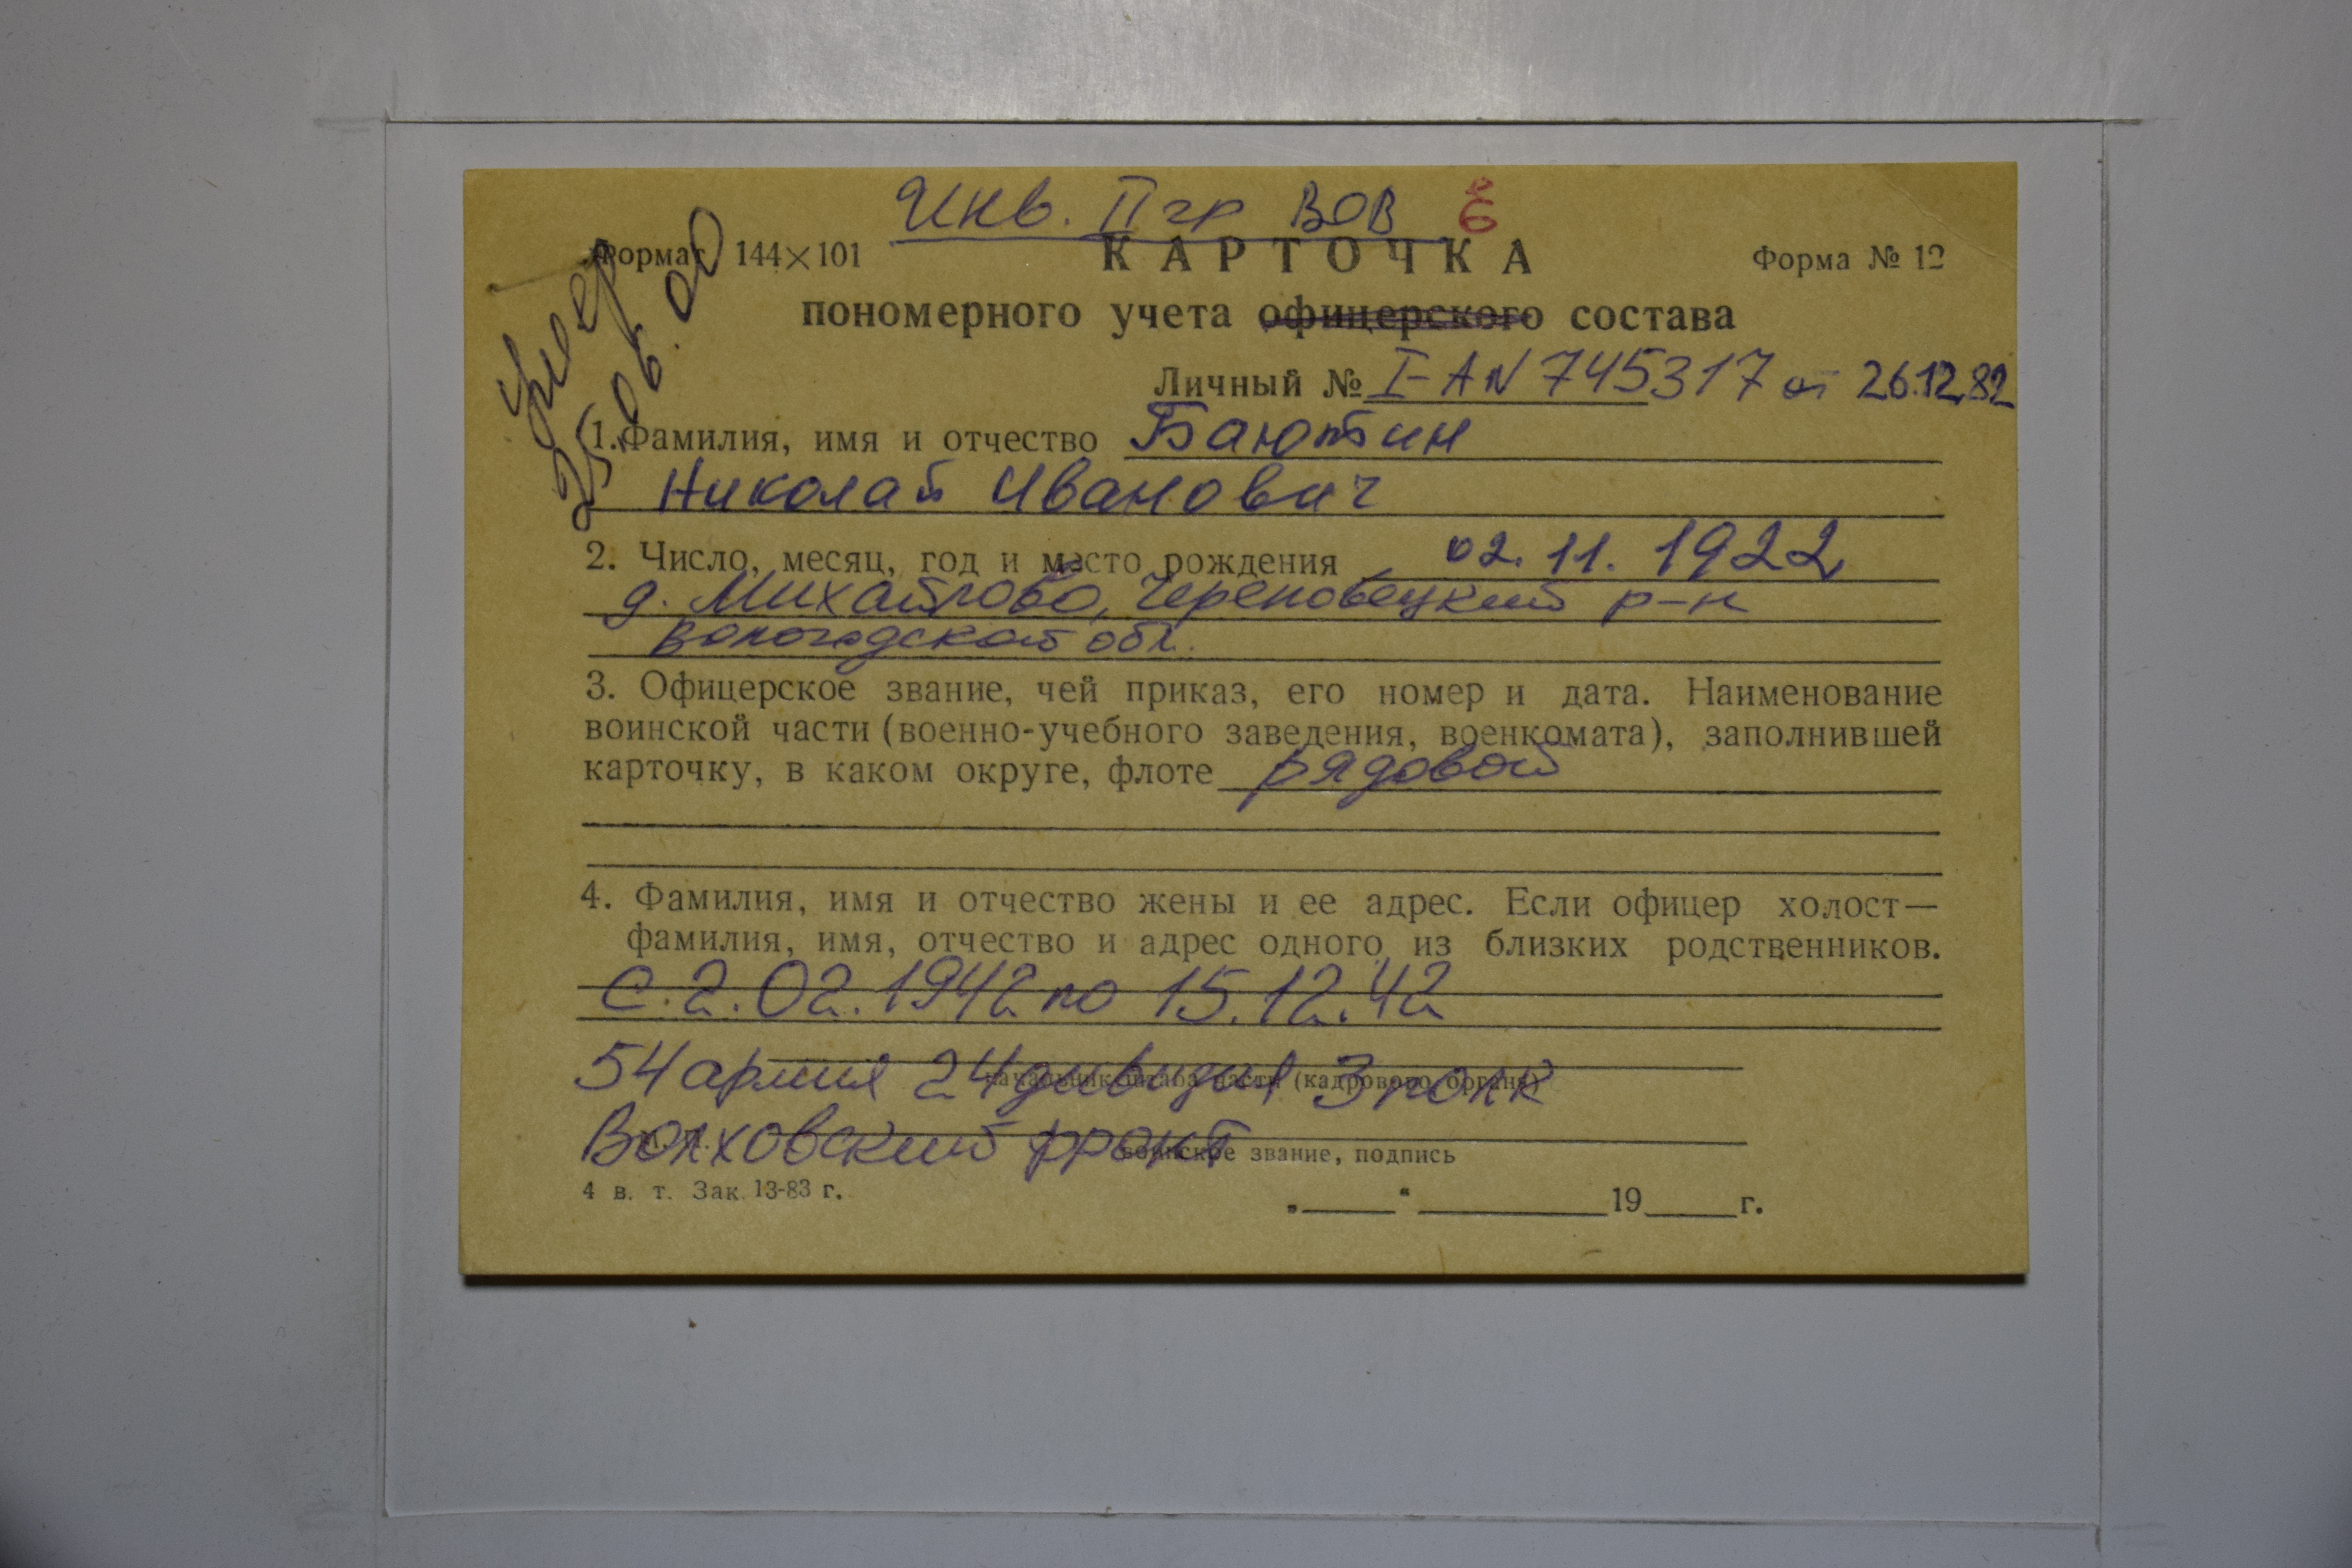 Инв. II гр ВОВ ё
Формат 144×101
КАРТОЧКА
Форма № 12
умер
25.06.00
пономерного учета офицерского состава
Личный № I-АN 745317 от 26.12.82
1. Фамилия, имя и отчество Баютин
Николай Иванович
2. Число, месяц, год и место рождения 02.11.1922
д. Михайлово, Череповецкий р-н
Вологодской обл.
3. Офицерское звание, чей приказ, его номер и дата. Наименование
воинской части (военно-учебного заведения, военкомата), заполнившей
карточку, в каком округе, флоте рядовой
4. Фамилия, имя и отчество жены и ее адрес. Если офицер холост—
фамилия, имя, отчество и адрес одного из близких родственников.
с 2.02.1942 по 15.12.42
54 армия 24 дивизия 3 полк
начальник штаба части (кадрового органа)
Волховский фронт
воинское звание, подпись
4 в. т. Зак. 13-83 г.
„ “ 19 г.